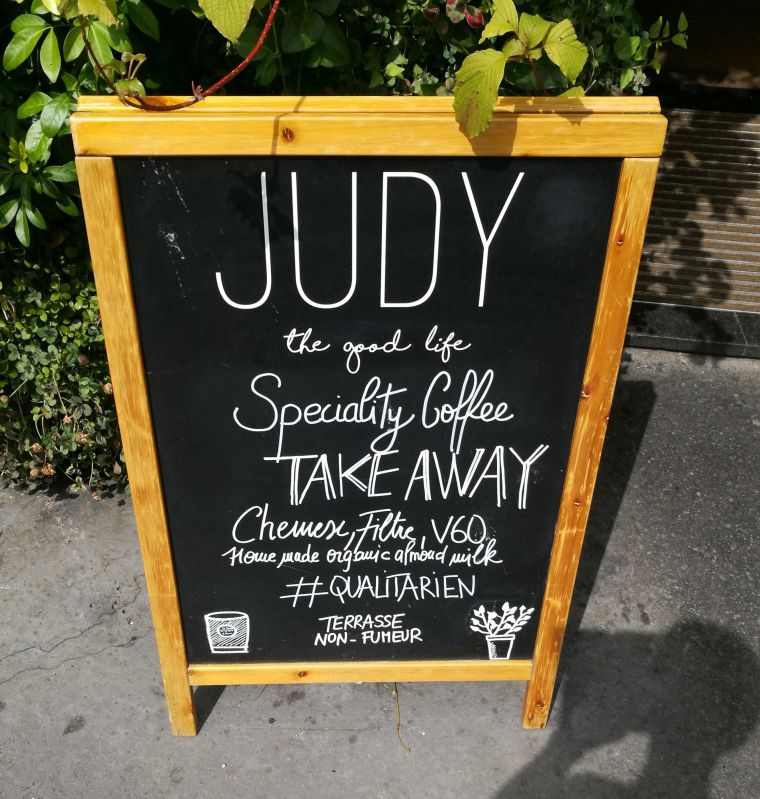 JUDY
the good life
Speciality Coffee
TAKE AWAY
Chemex, Filtre, V60
Home made organic almond milk
#QUALITARIEN
TERRASSE
NON-FUMEUR